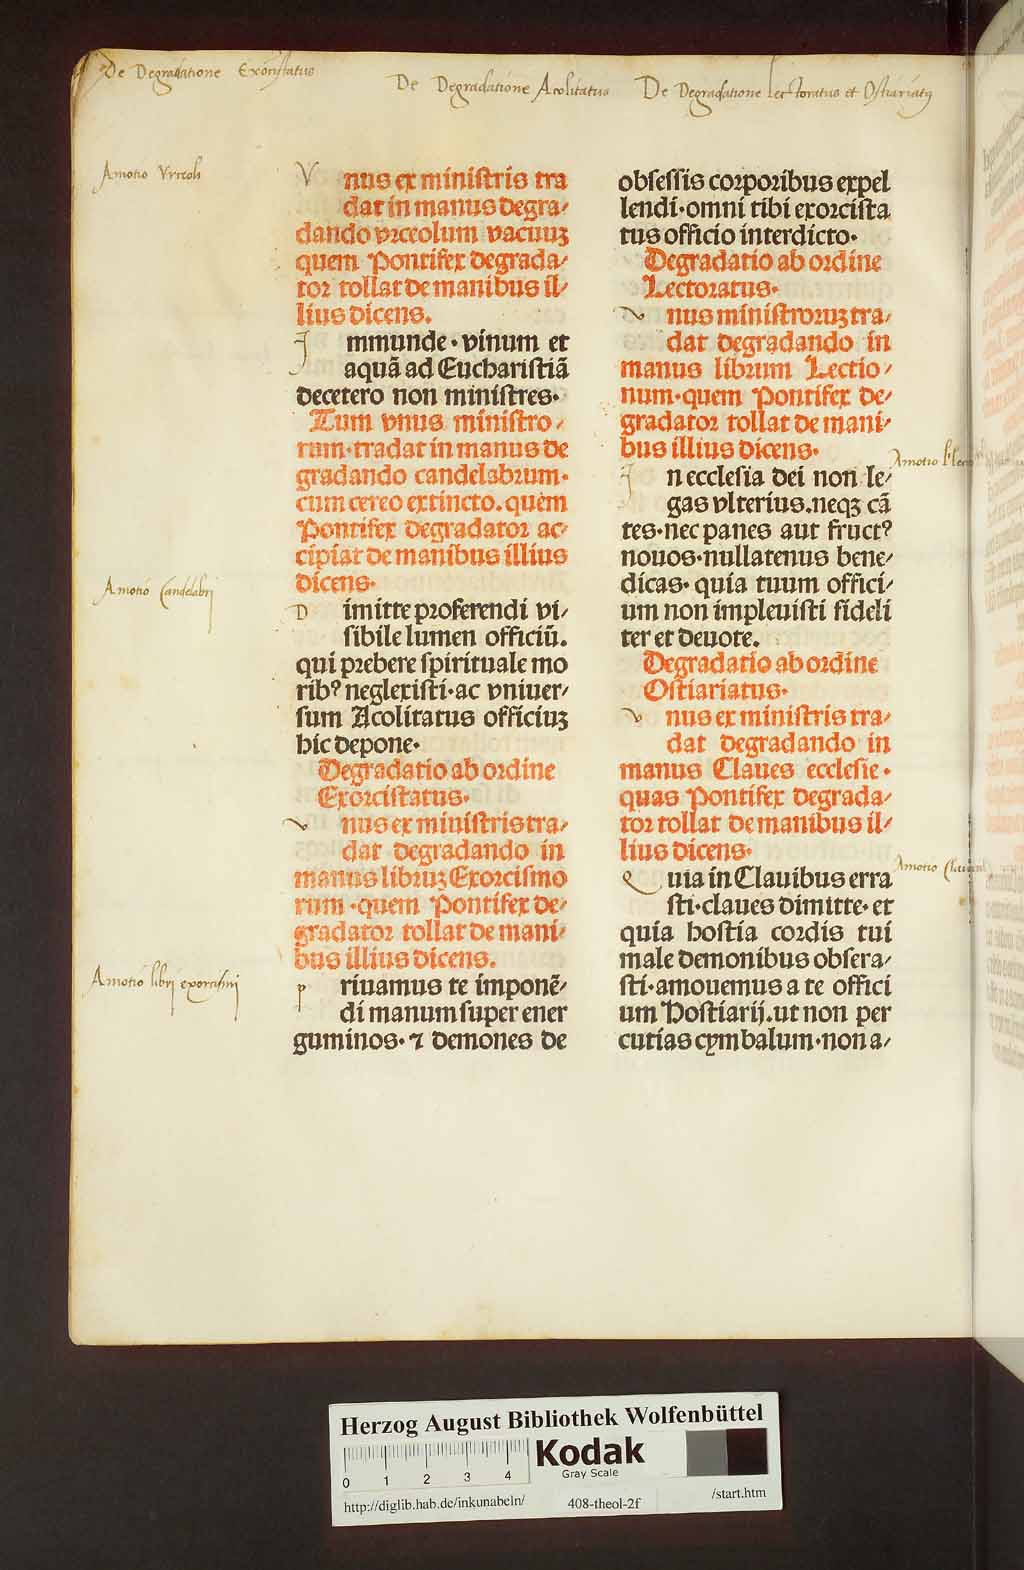 De Degradatione Exorcistatus
De Degradatione Acolitatus
De Degradatione Lectoratus et Ostiariatꝰ
Amotio Vrceoli
Vnus ex ministris tra
dat in manus degra/
dando vrceolum vacuuꝫ
quem Pontifex degrada/
tor tollat de manibus il/
lius dicens.
Immunde·vinum et
aquã ad Eucharistiã
decetero non ministres·
Tum vnus ministro/
rum·tradat in manus de
gradando candelabrum·
cum cereo extincto.quem
Pontifex degradator ac/
cipiat de manibus illius
dicens·
Amotio Candelabri
Dimitte proferendi vi/
sibile lumen officiũ.
qui prebere spirituale mo
ribꝰ neglexisti·ac vniuer/
sum Acolitatus officiuꝫ
hic depone·
Degradatio ab ordine
Exorcistatus·
Vnus ex ministris tra/
dat degradando in
manus libruꝫ Exorcismo
rum·quem Pontifex de/
gradator tollat de mani/
bus illius dicens.
Amotio libri exorcismi
Priuamus te imponẽ/
di manum super ener
guminos·⁊ demones de
obsessis corporibus expel
lendi·omni tibi exorcista
tus officio interdicto·
Degradatio ab ordine
Lectoratus·
Vnus ministroruꝫ tra/
dat degradando in
manus librum Lectio/
num·quem Pontifex de/
gradator tollat de mani/
bus illius dicens·
Amotio
In ecclesia dei non le/
gas vlterius.neqꝫ cã
tes·nec panes aut fructꝰ
nouos·nullatenus bene/
dicas·quia tuum offici/
um non impleuisti fideli
ter et deuote.
Degradatio ab ordine
Ostiariatus·
Vnus ex ministris tra/
dat degradando in
manus Claues ecclesie·
quas Pontifex degrada/
tor tollat de manibus il/
lius dicens·
Amotio
Quia in Clauibus erra
sti·claues dimitte·et
quia hostia cordis tui
male demonibus obsera/
sti·amouemus a te offici
um Hostiarij.ut non per
cutias cymbalum·non a/
Herzog August Bibliothek Wolfenbüttel
Kodak
Gray Scale
0 1 2 3 4
http://diglib.hab.de/inkunabeln/ 408-theol-2f /start.htm